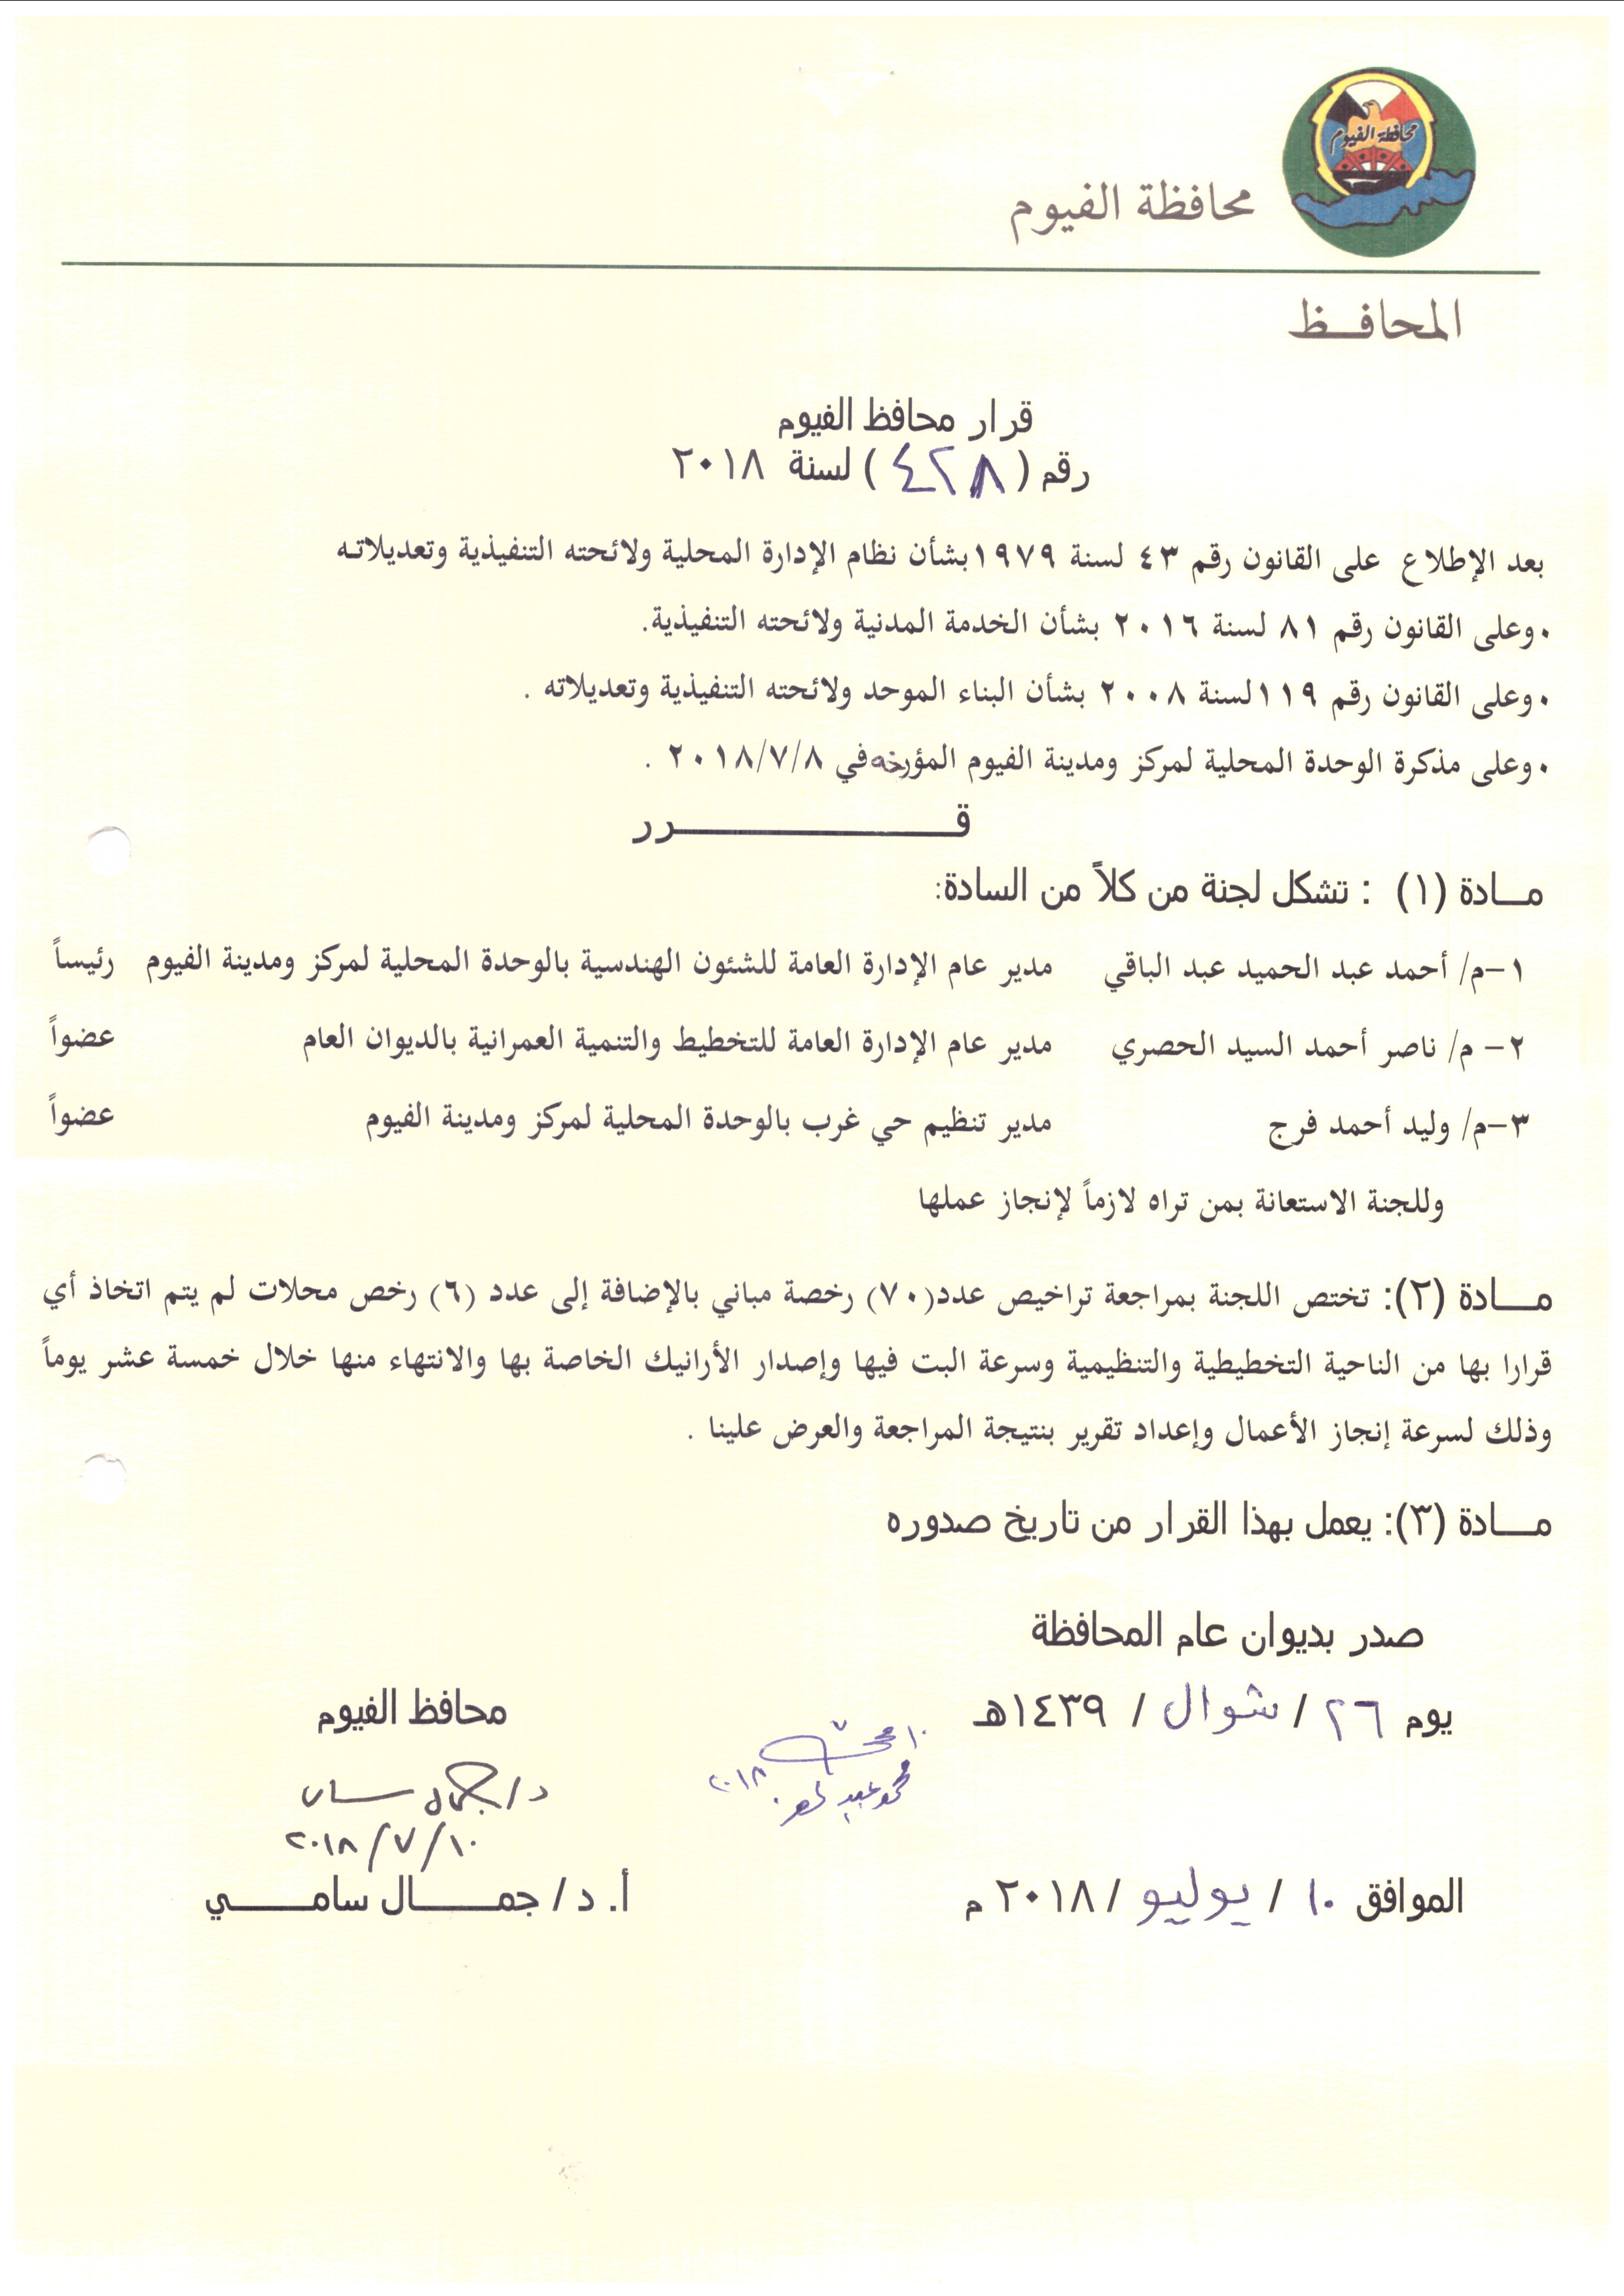 محافظة الفيوم
محافظة الفيوم
المحافـــظ
قرار محافظ الفيوم
رقم ( ٤٢٨ ) لسنة ٢٠١٨
بعد الإطلاع على القانون رقم ٤٣ لسنة ١٩٧٩بشأن نظام الإدارة المحلية ولائحته التنفيذية وتعديلاته
• وعلى القانون رقم ٨١ لسنة ٢٠١٦ بشأن الخدمة المدنية ولائحته التنفيذية.
• وعلى القانون رقم ١١٩لسنة ٢٠٠٨ بشأن البناء الموحد ولائحته التنفيذية وتعديلاته .
• وعلى مذكرة الوحدة المحلية لمركز ومدينة الفيوم المؤرخه في ٢٠١٨/٧/٨ .
قـــــــــــــرر
مـــادة (١) : تشكل لجنة من كلاً من السادة:
١-م/ أحمد عبد الحميد عبد الباقي مدير عام الإدارة العامة للشئون الهندسية بالوحدة المحلية لمركز ومدينة الفيوم رئيساً
٢- م/ ناصر أحمد السيد الحصري مدير عام الإدارة العامة للتخطيط والتنمية العمرانية بالديوان العام عضواً
٣-م/ وليد أحمد فرج مدير تنظيم حي غرب بالوحدة المحلية لمركز ومدينة الفيوم عضواً
وللجنة الاستعانة بمن تراه لازماً لإنجاز عملها
مـــادة (٢): تختص اللجنة بمراجعة تراخيص عدد(٧٠) رخصة مباني بالإضافة إلى عدد (٦) رخص محلات لم يتم اتخاذ أي
قرارا بها من الناحية التخطيطية والتنظيمية وسرعة البت فيها وإصدار الأرانيك الخاصة بها والانتهاء منها خلال خمسة عشر يوماً
وذلك لسرعة إنجاز الأعمال وإعداد تقرير بنتيجة المراجعة والعرض علينا .
مـــادة (٣): يعمل بهذا القرار من تاريخ صدوره
صدر بديوان عام المحافظة
يوم ٢٦ / شوال / ١٤٣٩هـ
الموافق ١٠ / يوليو / ٢٠١٨ م
٢٠١٨
محافظ الفيوم
د/ جمال سامي
٢٠١٨/٧/١٠
أ. د/ جمـــــال سامـــــي